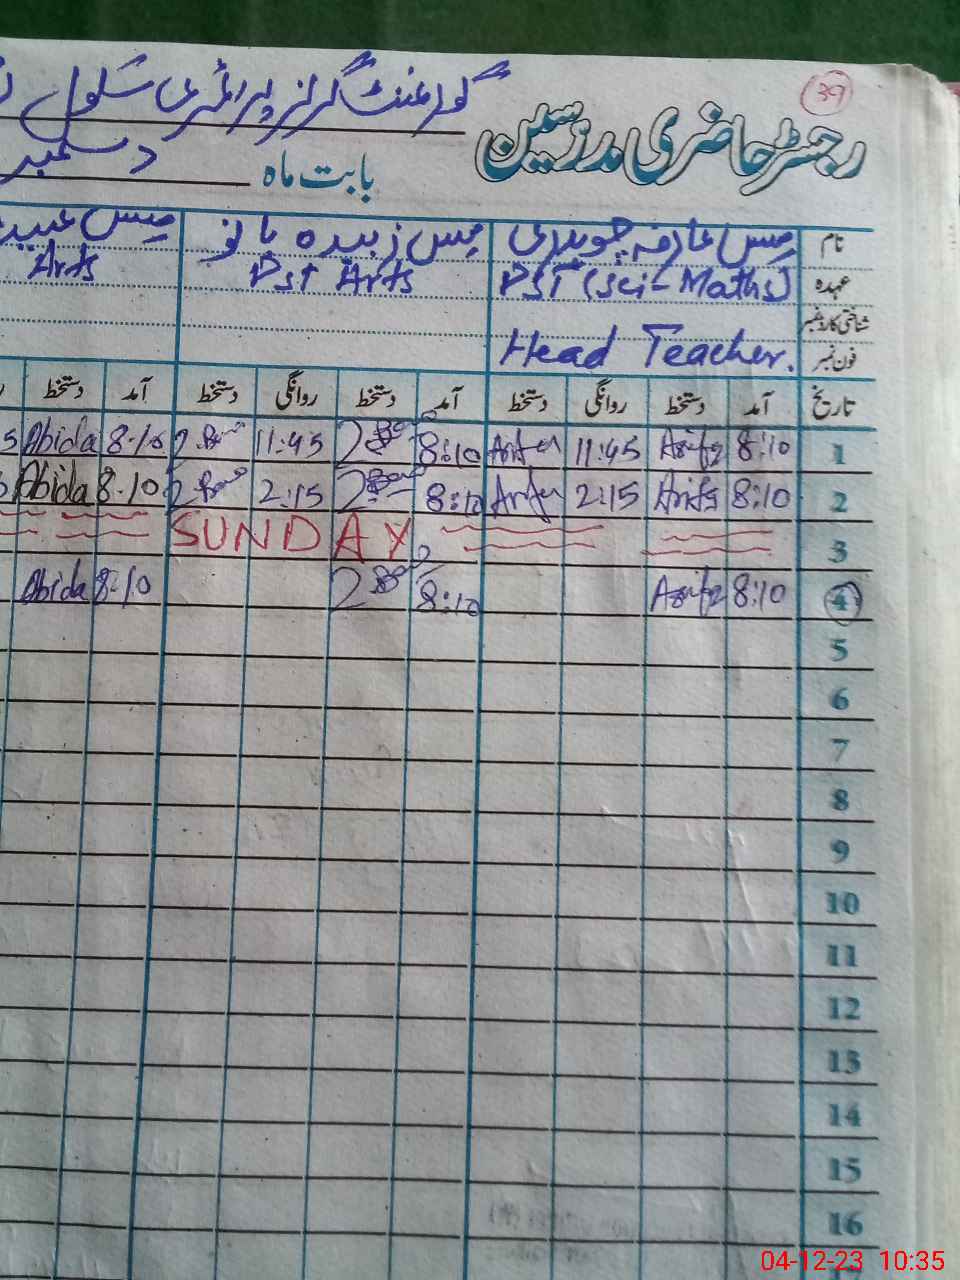 39
رجسٹر حاضری مدرسین گورنمنٹ گرلز پرائمری سکول
بابت ماہ دسمبر
نام مس عارفہ چوہدری مس زبیدہ بانو مس
عہدہ PST (Sci-Maths) Pst Arts Arts
شناختی کارڈ نمبر
فون نمبر Head Teacher.
تاریخ آمد دستخط روانگی دستخط آمد دستخط روانگی دستخط آمد دستخط
1 8:10 Arifa 11:45 Arifa 8:10 11:45 8-10 Abida
2 8:10 Arifa 2:15 Arifa 8:10 2:15 8-10 Abida
3 SUNDAY
4 8:10 Arifa 8:10 8-10 Abida
5
6
7
8
9
10
11
12
13
14
15
16
04-12-23 10:35